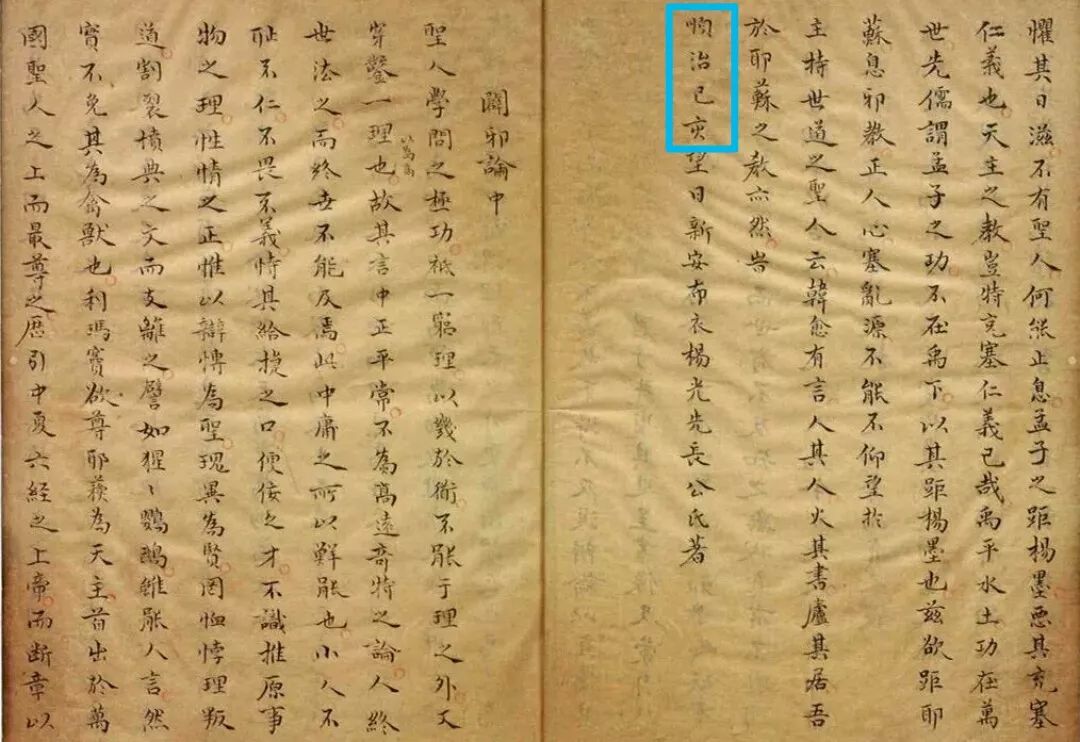 懼其日滋不有聖人何能止息孟子之距楊墨惡其充塞
仁義也天主之教豈特充塞仁義已哉禹平水土功在萬
世先儒謂孟子之功不在禹下以其距楊墨也兹欲距耶
蘇息邪教正人心塞亂源不能不仰望於
主持世道之聖人云韓愈有言人其人火其書廬其居吾
於耶蘇之教亦然旹
順治己亥望日新安布衣楊光先長公氏著
闢邪論中
聖人學問之極功祇一窮理以幾於衜不能于理之外又
穿鑿一理以為高也故其言中正平常不為高遠奇特之論人終
世法之而終世不能及焉此中庸之所以鮮能也小人不
耻不仁不畏不義恃其給捷之口便佞之才不識推原事
物之理性情之正惟以辯博為聖瑰異為賢罔恤悖理叛
道割裂墳典之文而支離之譬如猩〻鸚鵡雖能人言然
實不免其為禽獸也利瑪竇欲尊耶蘇為天主首出於萬
國聖人之上而最尊之歷引中夏六經之上帝而斷章以